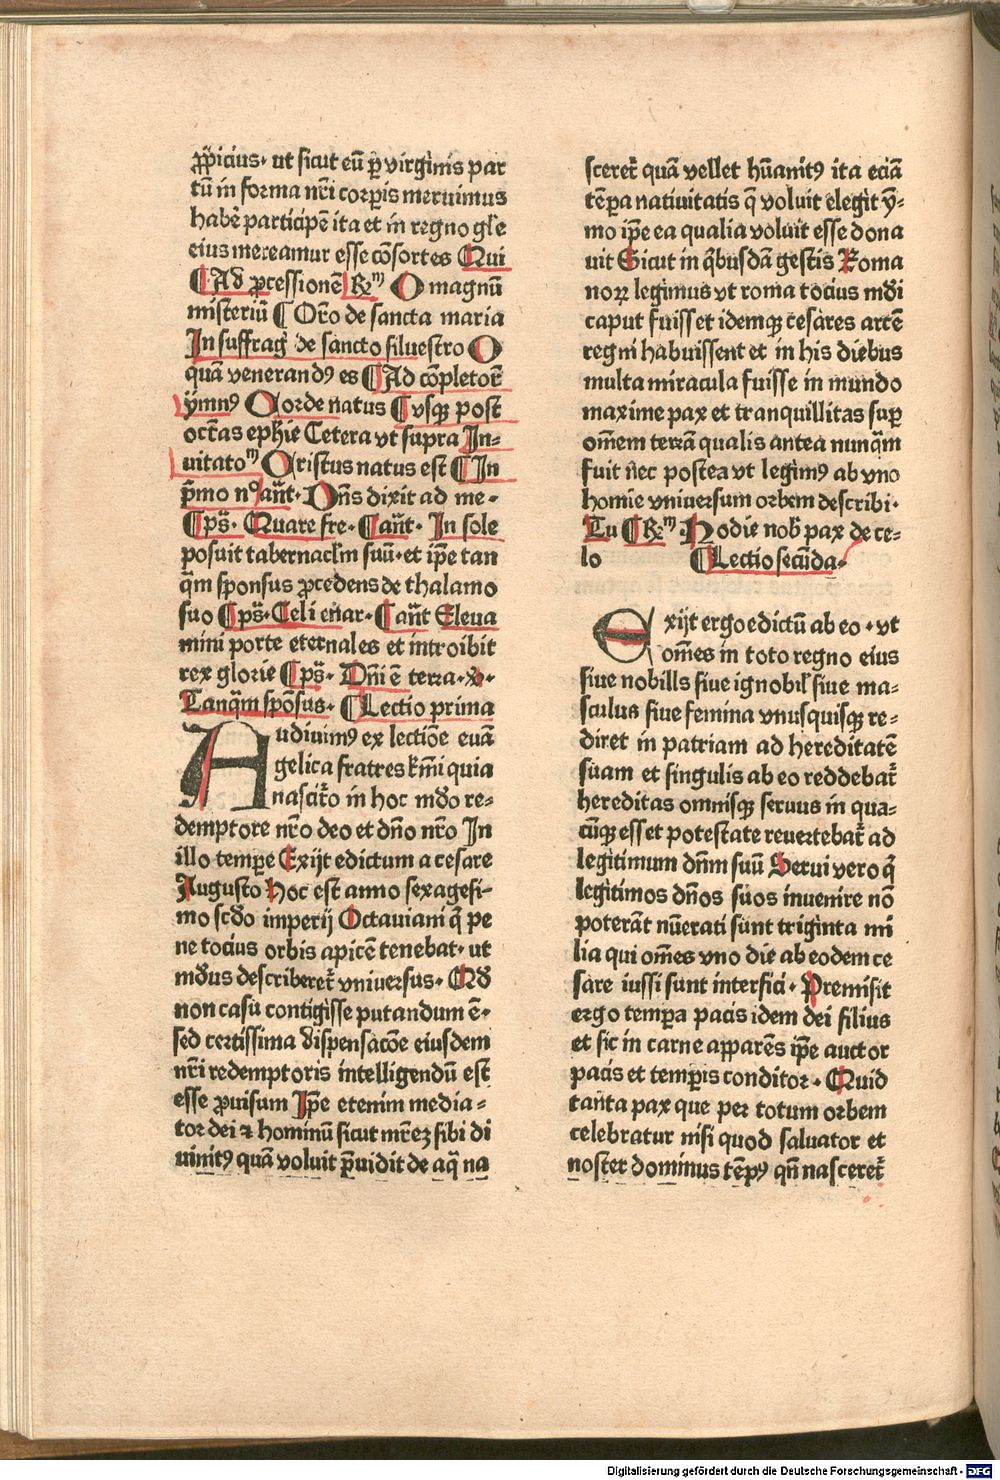 ꝓpicius· ut sicut eū ꝑ virginis par
tū in forma nr̄i corꝑis meruimus
habē participē ita et in regno gl'e
eius mereamur esse cōsortes Qui
¶Ad ꝓcessionē ℟m O magnū
misteriū ¶Orō de sancta maria
In suffraḡ de sancto siluestro O
quā venerandꝰ es ¶Ad cōpletor̄
ymnꝰ A solis orde natus ¶vsqꝫ post
octa̅s ephie Cetera vt supra In-
uitato℟m Cristus natus est ¶In
pmo n° an̄t· Dn̄s dixit ad me·
¶ps̄· Quare fre· ¶an̄t· In sole
posuit tabernacl'm suū· et ip̄e tan
q̄m sponsus ꝓcedens de thalamo
suo ¶ps̄· Celi en̄ar· ¶an̄t Eleua
mini porte eternales et introibit
rex glorie ¶ps̄· Dn̄i ē terra·℣·
Tanq̄m spōsus· ¶Lectio prima
Audiuimꝰ ex lectiōe euā
gelica fratres kr̄mi quia
nascit̄o in hoc mūdo re-
demptore nr̄o deo et dn̄o nr̄o In
illo temꝑe Exijt edictum a cesare
Augusto Hoc est anno sexagesi-
mo scd̄o imperij Octauiani q̄ pe
ne tocius orbis apicē tenebat· ut
md̄us describeret̄ vniuersus· Qd̄
non casu contigisse putandum ē·
sed certissima dispensacōe eiusdem
nr̄i redemptoris intelligendū est
esse ꝓuisum Ip̄e etenim media-
tor dei ⁊ hominū sicut mr̄eꝫ sibi di
uinitꝰ quā voluit p̄uidit de aq̄ na
sceret̄ quā vellet hūanitꝰ ita eciā
tēꝑa natiuitatis q̄ voluit elegit ȳ-
mo ip̄e ea qualia voluit esse dona
uit Sicut in q̄busdā gestis Roma
noꝝ legimus vt roma tocius md̄i
caput fuisset idemqꝫ cesares arcē
regni habuissent et in his diebus
multa miracula fuisse in mundo
maxime pax et tranquillitas suꝑ
om̄em terrā qualis antea nunq̄m
fuit nec postea vt legimꝰ ab vno
homie vniuersum orbem describi·
Tu ¶℟m· Hodie nob̄ pax de ce-
lo ¶Lectio secūda·
Exijt ergo edictū ab eo· vt
om̄es in toto regno eius
siue nobills siue ignobil' siue ma-
sculus siue femina vnusquisqꝫ re-
diret in patriam ad hereditatē
suam et singulis ab eo reddebat̄
hereditas omnisqꝫ seruus in qua-
cūqꝫ esset potestate reuertebat̄ ad
legitimum dn̄m suū Serui vero q̄
legitimos dn̄os suos inuenire nō
poterāt nūerati sunt triginta mi
lia qui om̄es vno die ab eodem ce
sare iussi sunt interfici· Premisit
ergo tempꝑa pacis idem dei filius
et sic in carne apparēs ip̄e auctor
pacis et temꝑis conditor· Quid
tanta pax que per totum orbem
celebratur nisi quod saluator et
noster dominus tēpꝰ qn̄ nasceret̄
Digitalisierung gefördert durch die Deutsche Forschungsgemeinschaft - DFG